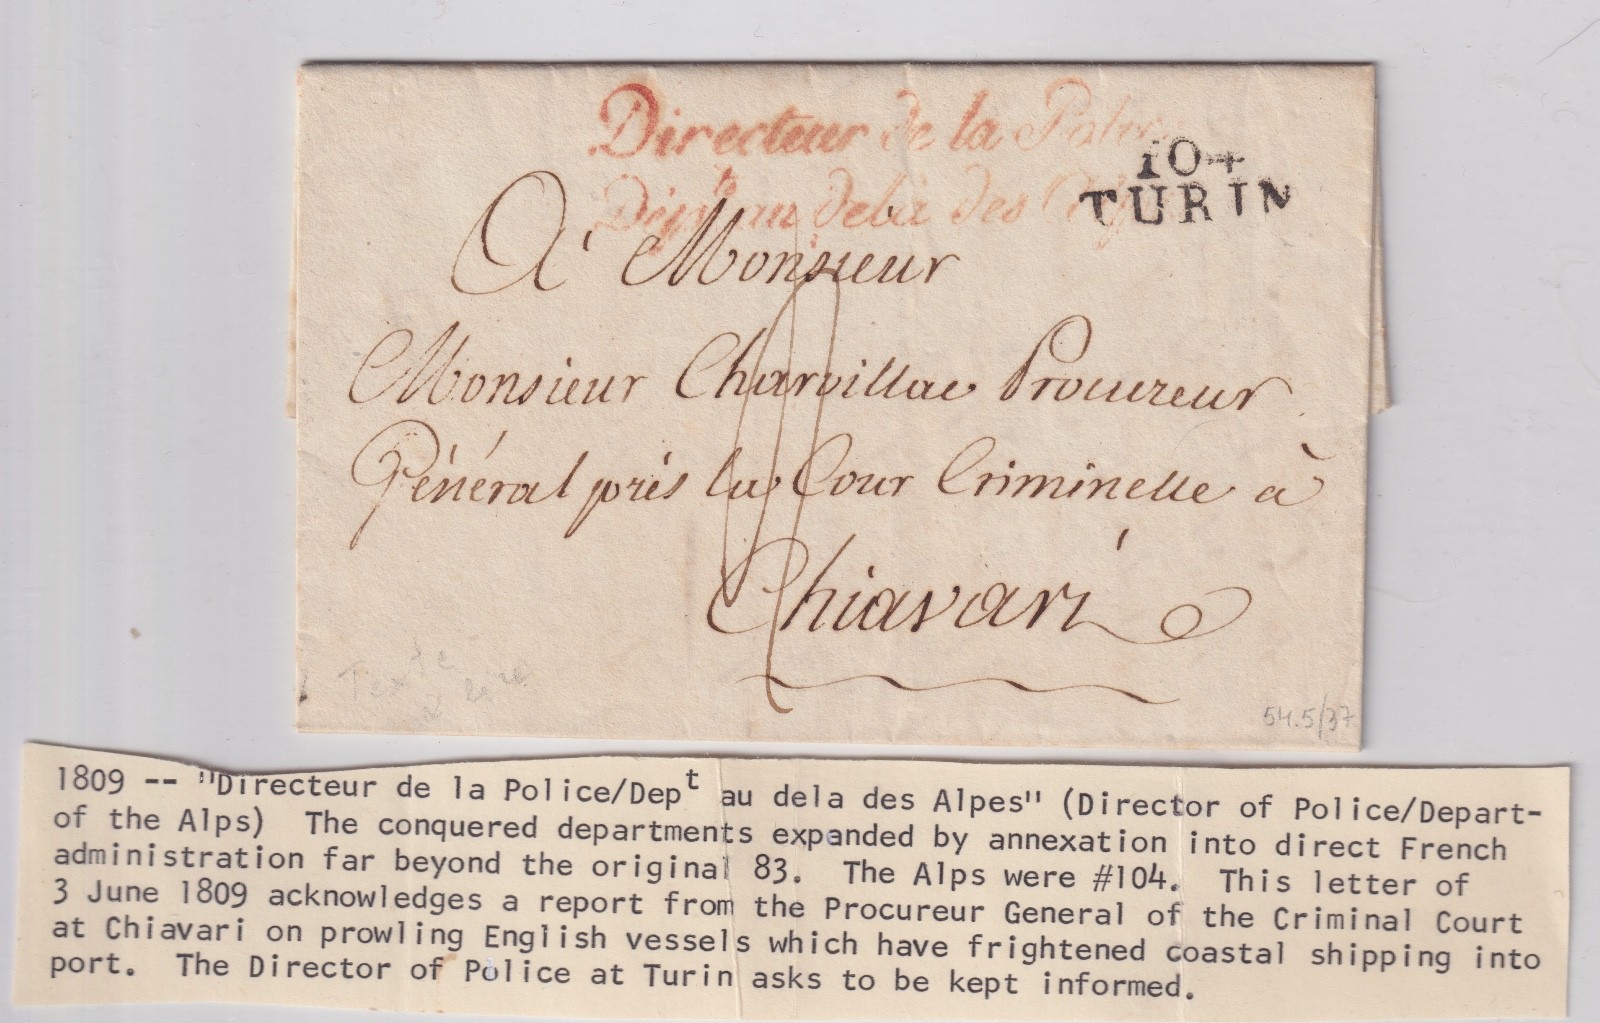 Directeur de la Police
Dépts au delà des Alpes
104
TURIN
A Monsieur
Monsieur Charvillac Procureur
Général près la Cour Criminelle à
Chiavari
Texte
a lire
54.5/37
1809 -- "Directeur de la Police/Dept au dela des Alpes" (Director of Police/Depart-
of the Alps) The conquered departments expanded by annexation into direct French
administration far beyond the original 83. The Alps were #104. This letter of
3 June 1809 acknowledges a report from the Procureur General of the Criminal Court
at Chiavari on prowling English vessels which have frightened coastal shipping into
port. The Director of Police at Turin asks to be kept informed.